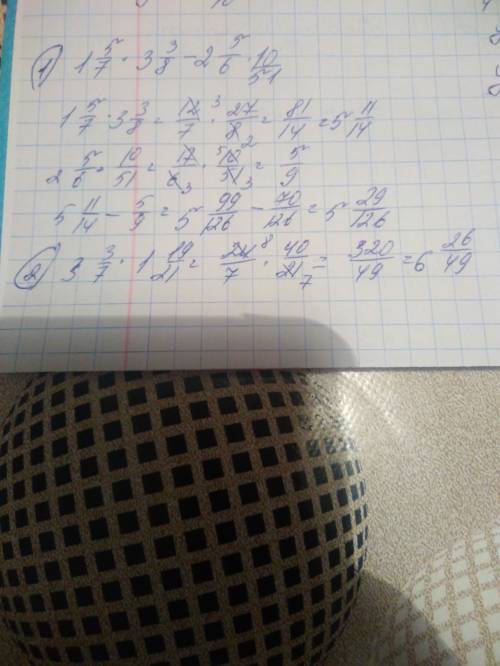 1) 1 5/7 · 3 3/8 − 2 5/6 · 10/51
1 5/7 · 3 3/8 = 12/7 ³ · 27/8 ₂ = 81/14 = 5 11/14
2 5/6 · 10/51 = 17/6 ₃ · ⁵ 10/51 ₃ = 5/9
5 11/14 − 5/9 = 5 99/126 − 70/126 = 5 29/126
2) 3 3/7 · 1 19/21 = 24/7 ⁸ · 40/21 ₇ = 320/49 = 6 26/49